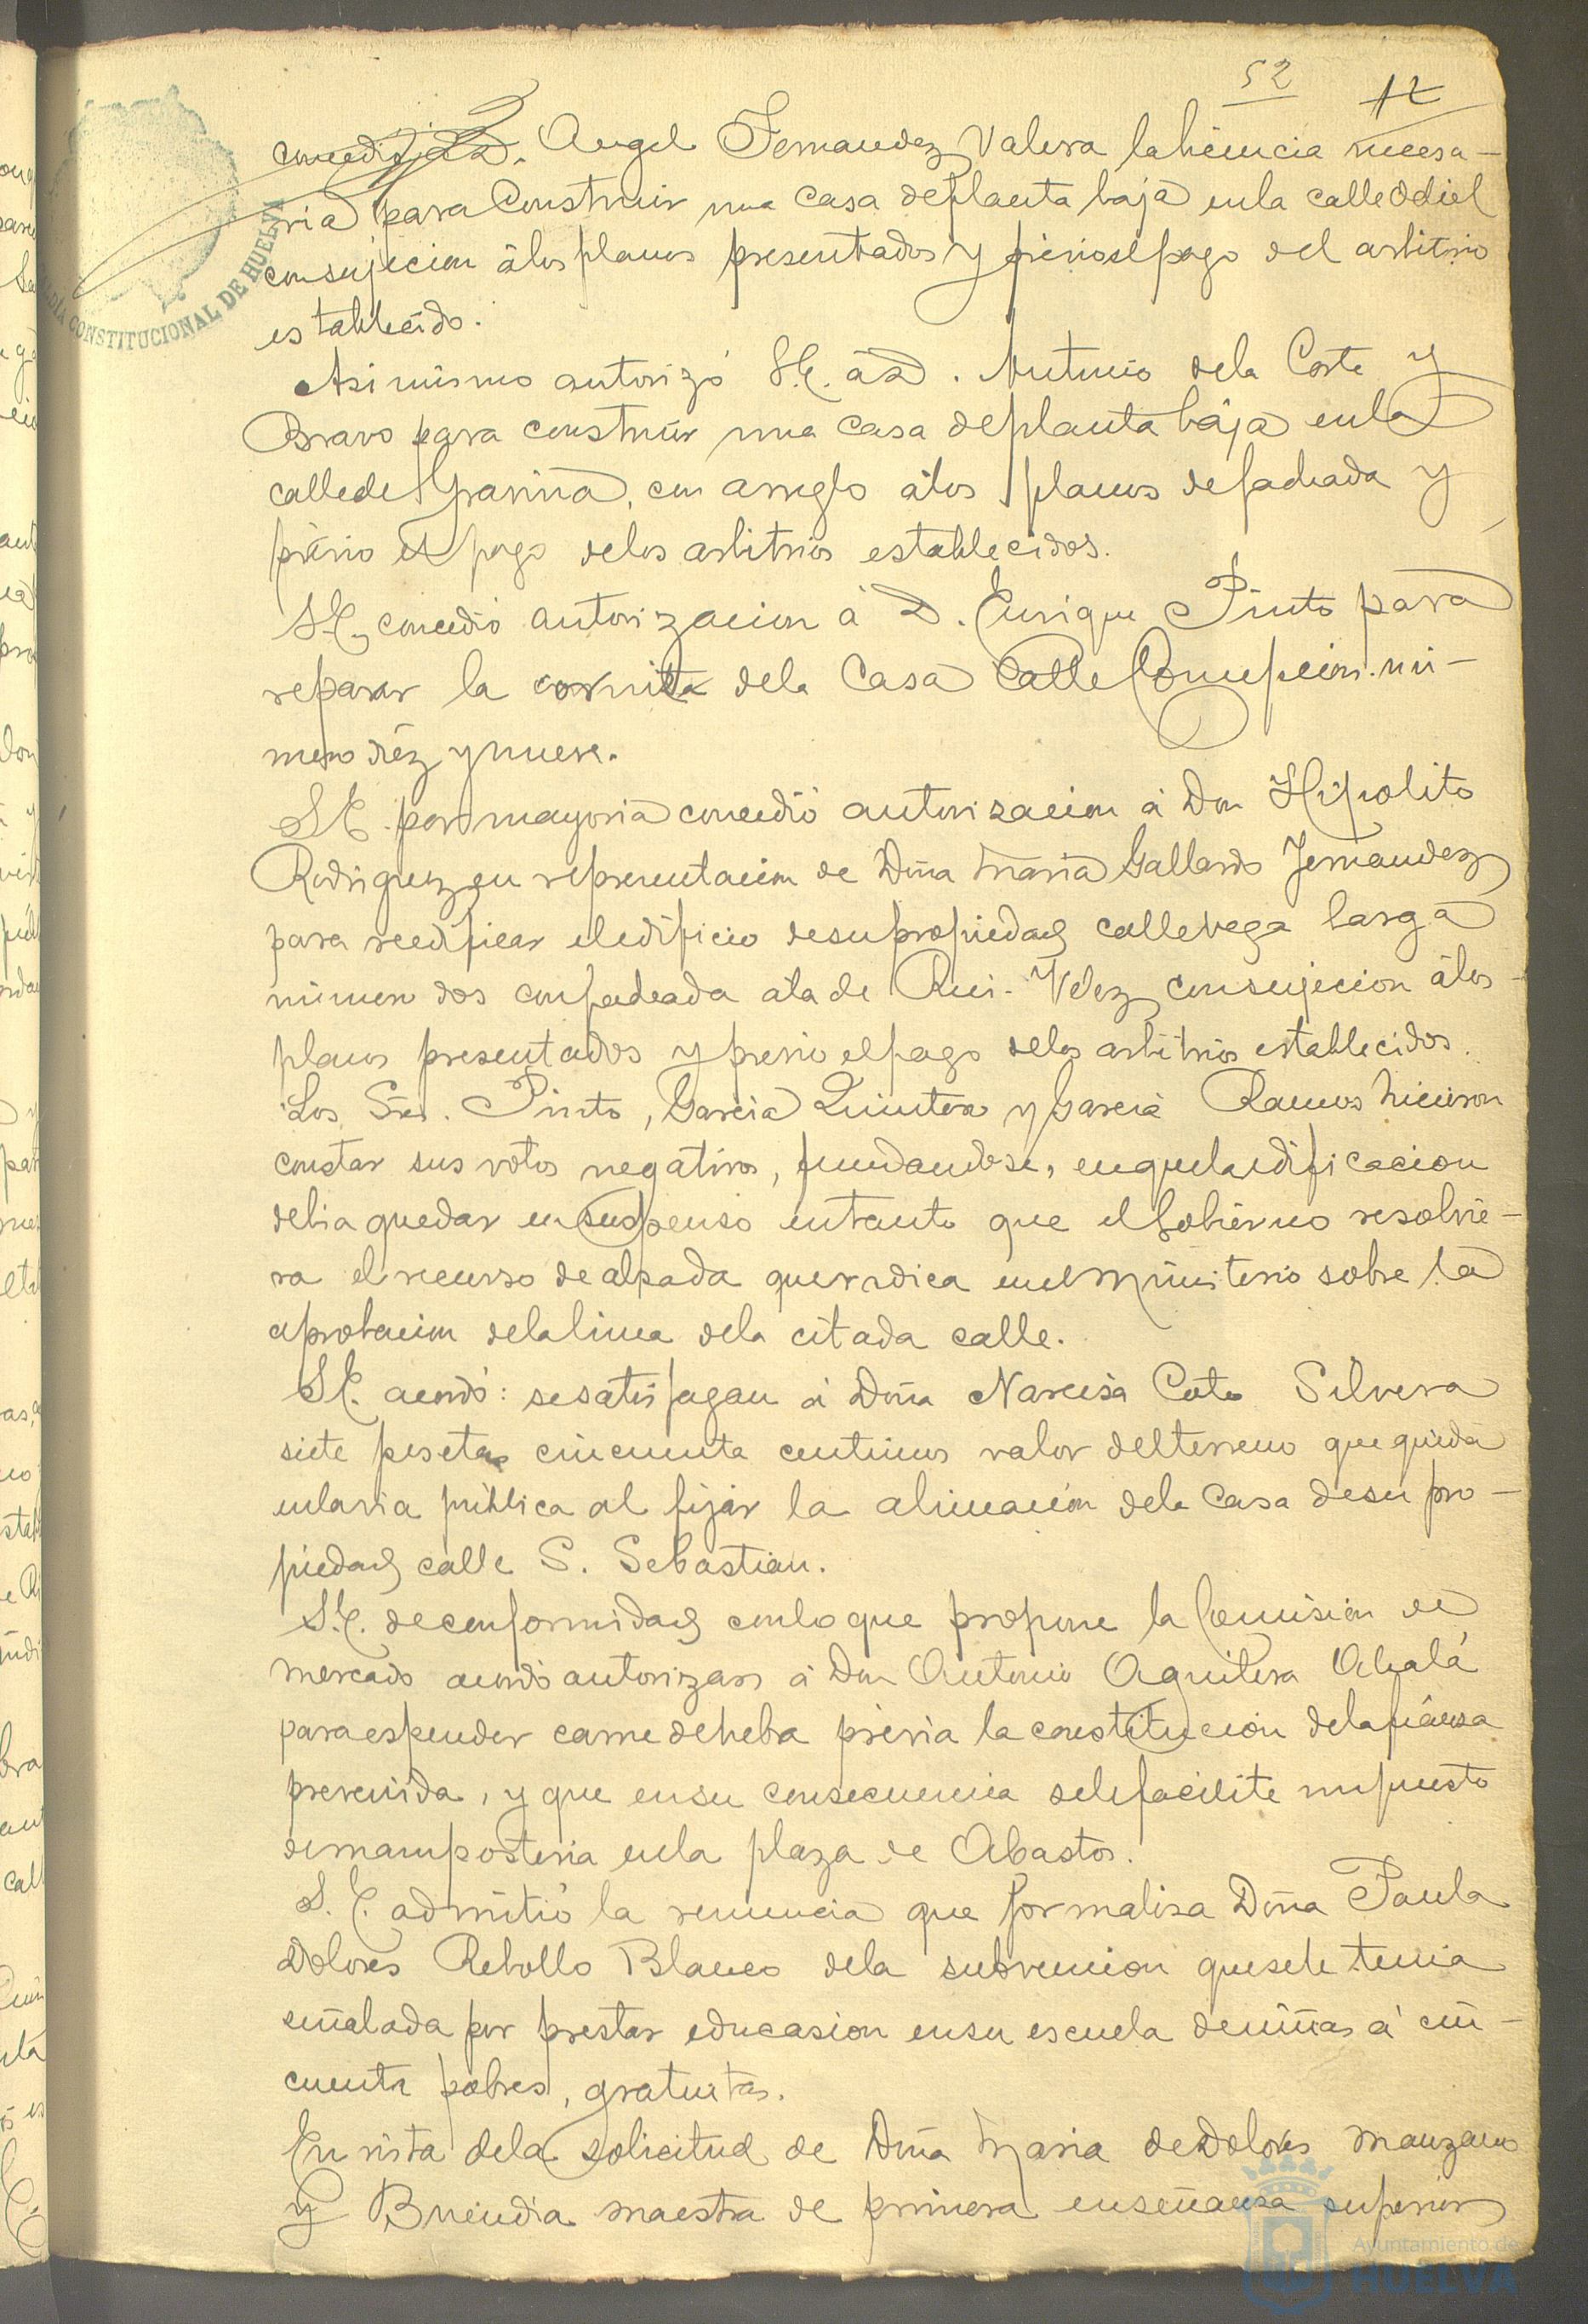 52 12
concedió á D. Angel Fernandez Valera la licencia necesa-
ria para Construir una casa de planta baja en la calle Odiel
con sujecion á los planos presentados y prévio el pago del arbitrio
establecido.
Asi mismo autorizó S.E. á D. Antonio de la Corte y
Bravo para construir una casa de planta baja en la
calle de Gravina, con arreglo á los planos de fachada y
prévio el pago de los arbitrios establecidos.
S.E. concedió autorizacion á D. Enrique Pinto para
reparar la cornisa de la Casa Calle Concepcion nú-
mero diéz y nueve.
S.E. por mayoria concedió autorizacion á Don Hipolito
Rodriguez en representacion de Doña Maria Gallardo Fernandez
para reedificar el edificio de su propiedad calle vega larga
número dos con fachada a la de Rui-Velez con sujecion á los
planos presentados y previo el pago de los arbitrios establecidos.
Los Sres. Pinto, Garcia Quintero y Garcia Ramos hicieron
constar sus votos negativos, fundandose, en que la edificacion
debia quedar en suspenso en tanto que el Gobierno resolvie-
ra el recurso de alzada que radica en el Ministerio sobre la
aprobacion de la linea de la citada calle.
S.E. acordó: se satisfagan á Doña Narcisa Coto Silvera
siete pesetas cincuenta centimos valor del terreno que queda
en la via pública al fijar la alineación de la Casa de su pro-
piedad calle S. Sebastian.
S.E. de conformidad con lo que propone la Comision de
Mercado acordó autorizar á Don Antonio Aguilera Alcalá
para espender carne de hebra prévia la constitucion de la fianza
prevenida, y que en su consecuencia se le facilite un puesto
de mamposteria en la plaza de Abastos.
S.E. admitió la renuncia que formalisa Doña Paula
Dolores Rebollo Blanco de la subvencion que se le tenia
señalada por prestar educasion en su escuela de niñas á cin-
cuenta pobres, gratuitas.
En vista de la solicitud de Doña Maria de Dolores Manzano
y Buendia maestra de primera enseñansa superior
ALCALDÍA CONSTITUCIONAL DE HUELVA
Ayuntamiento de
HUELVA